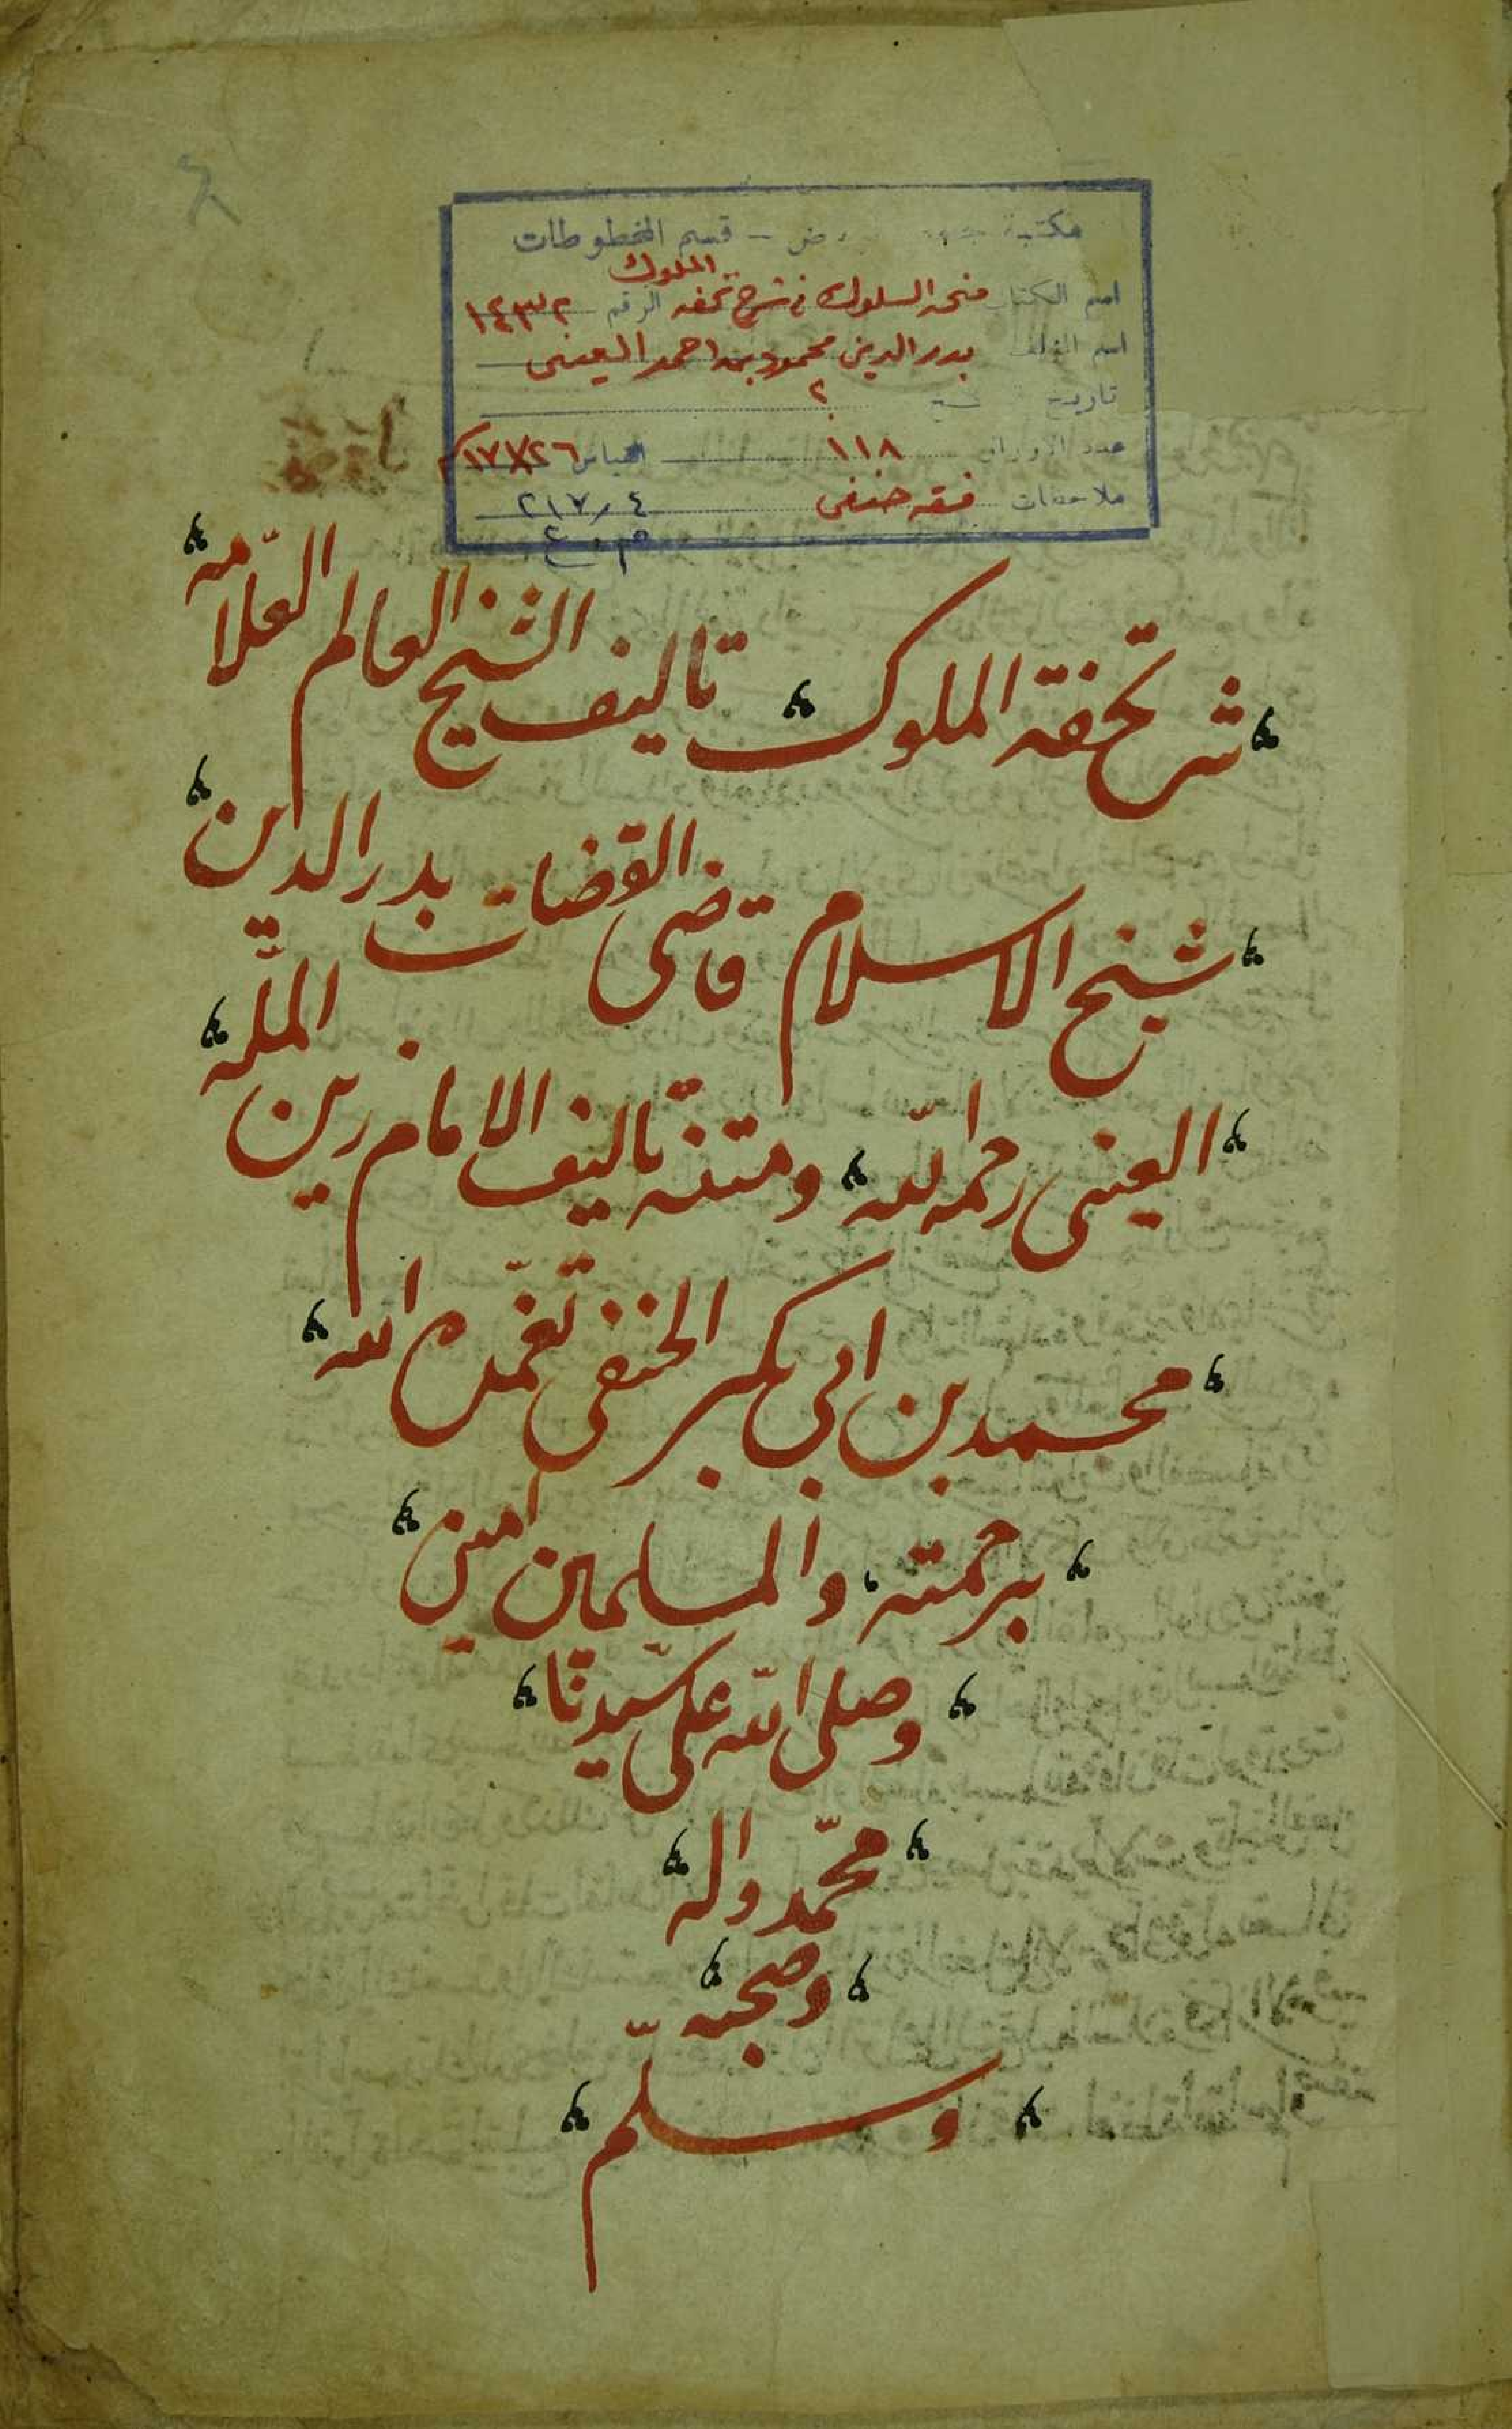 مكتبة - قسم المخطوطات
اسم الكتاب منحة السلوك في شرح تحفة الملوك الرقم ١٤٣٢
اسم المؤلف بدر الدين محمود بن احمد العيني
تاريخ النسخ ؟
عدد الاوراق ١١٨ القياس
ملاحظات فقه حنفي ٢١٧٫٤
شرح تحفة الملوك تاليف الشيخ العالم العلّامة
شيخ الاسلام قاضى القضات بدر الدين
العينى رحمه الله ومتنه تاليف الامام زين الملّة
محمد بن ابي بكر الحنفى تغمّده الله
برحمته والمسلمين امين
وصلى الله على سيّدنا
محمّد واله
وصحبه
وسلّم